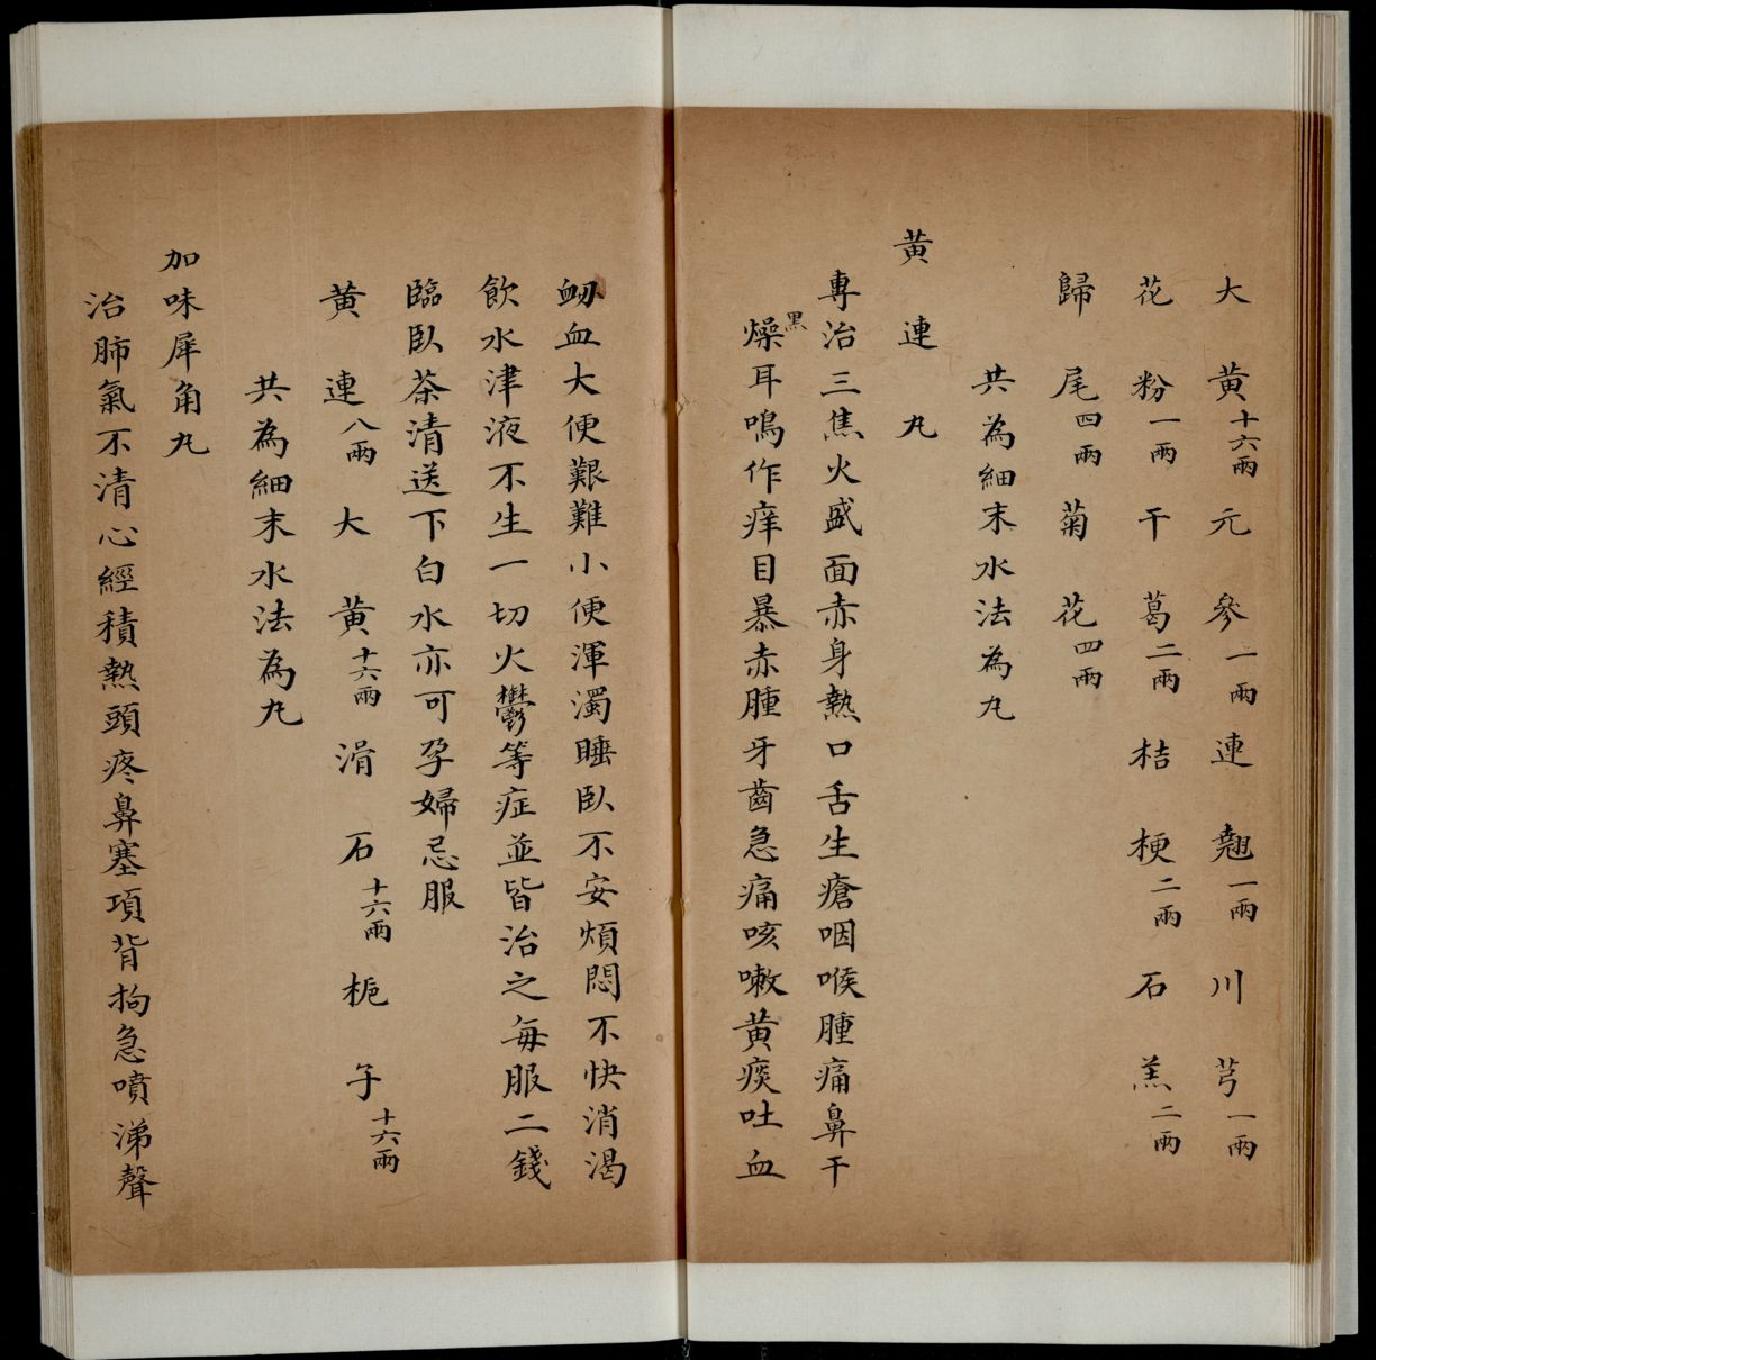 大黃十六兩元參一兩連翹一兩川芎一兩
花粉一兩干葛二兩桔梗二兩石羔二兩
歸尾四兩菊花四兩
共為細末水法為丸
黃連丸
專治三焦火盛面赤身熱口舌生瘡咽喉腫痛鼻干
黑
燥耳鳴作痒目暴赤腫牙齒急痛咳嗽黃痰吐血
衂血大便艱難小便渾濁睡臥不安煩悶不快消渴
飲水津液不生一切火鬱等症並皆治之每服二錢
臨臥茶清送下白水亦可孕婦忌服
黃連八兩大黃十六兩滑石十六兩梔子十六兩
共為細末水法為丸
加味犀角丸
治肺氣不清心經積熱頭疼鼻塞項背拘急噴涕聲